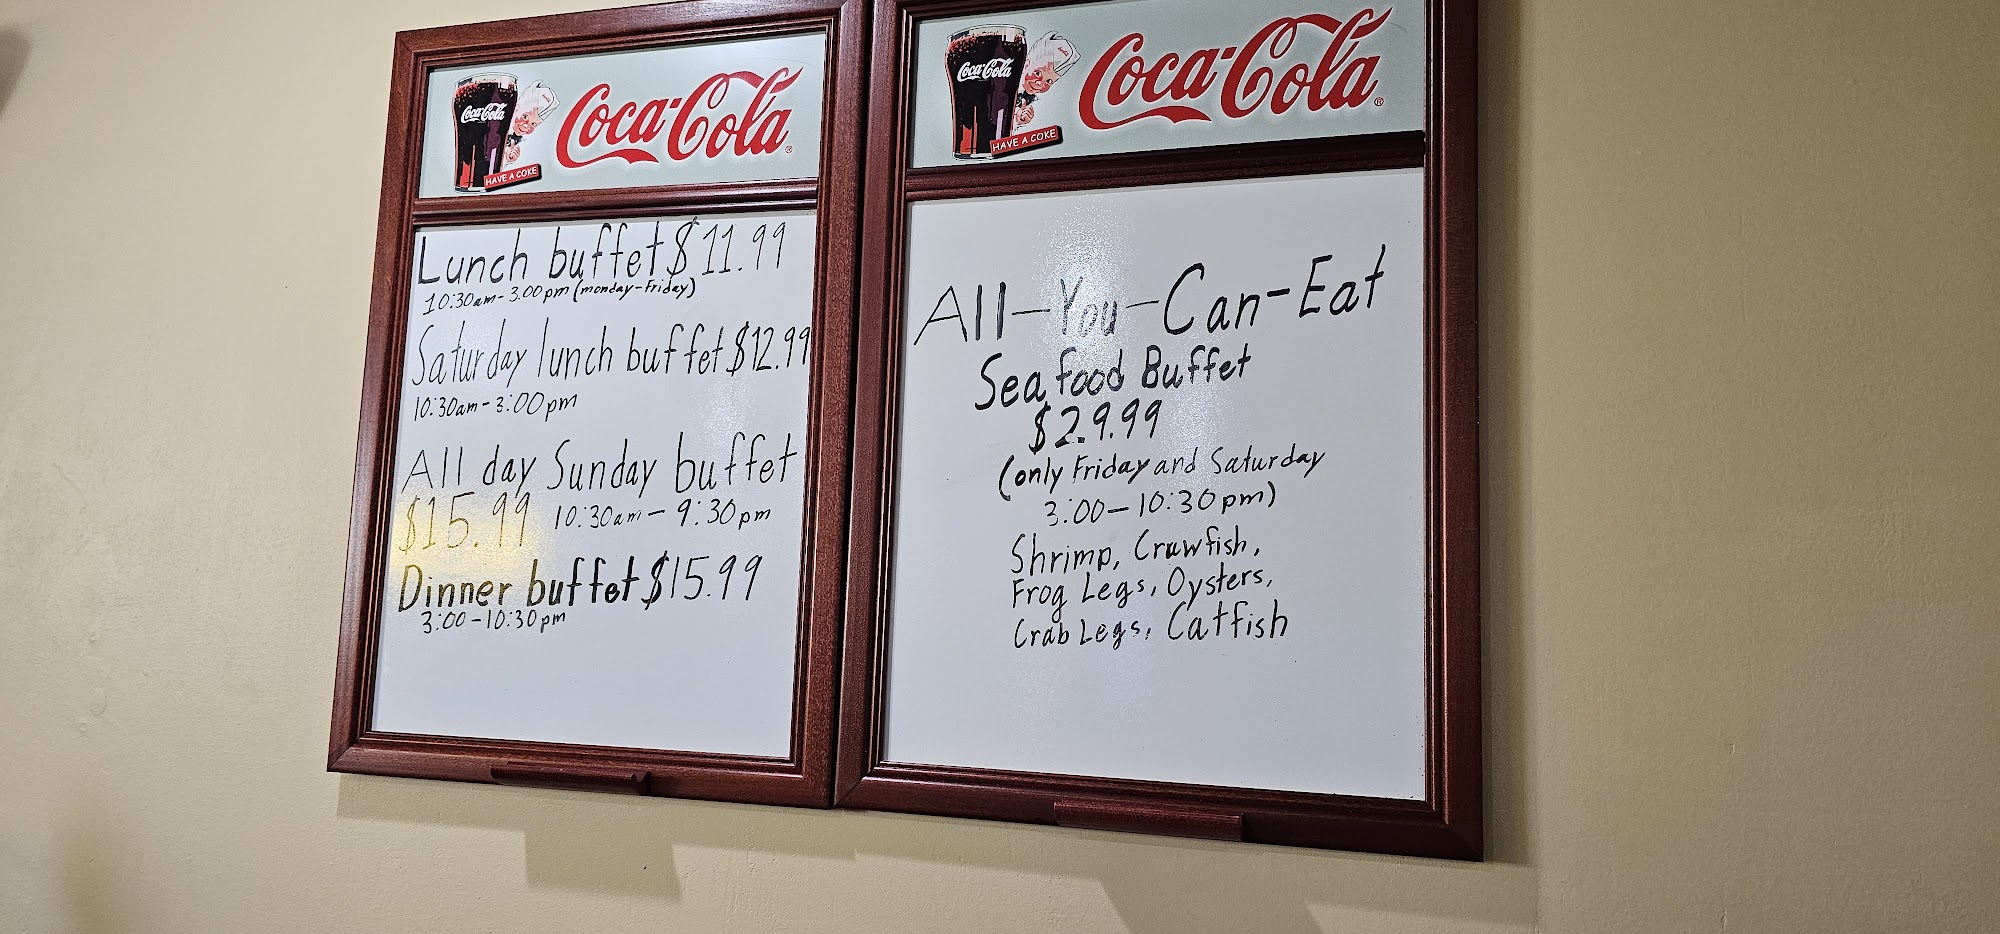 Coca-Cola
Coca-Cola®
HAVE A COKE
Lunch buffet $11.99
10:30am-3.00pm (monday-Friday)
Saturday lunch buffet $12.99
10:30am-3:00pm
All day Sunday buffet
$15.99 10:30am-9:30pm
Dinner buffet $15.99
3:00-10:30pm
Coca-Cola
Coca-Cola®
HAVE A COKE
All-You-Can-Eat
Seafood Buffet
$29.99
(only Friday and Saturday
3:00-10:30pm)
Shrimp, Crawfish,
Frog Legs, Oysters,
Crab Legs, Catfish